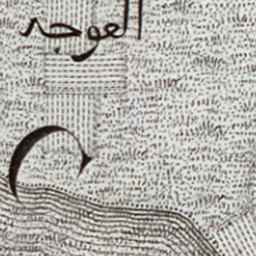 العوجه